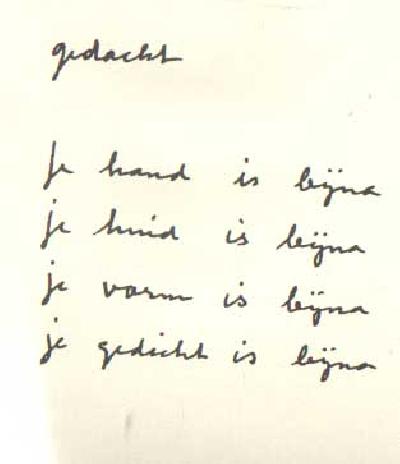 gedacht
Je hand is bijna
je huid is bijna
je vorm is bijna
je gedicht is bijna